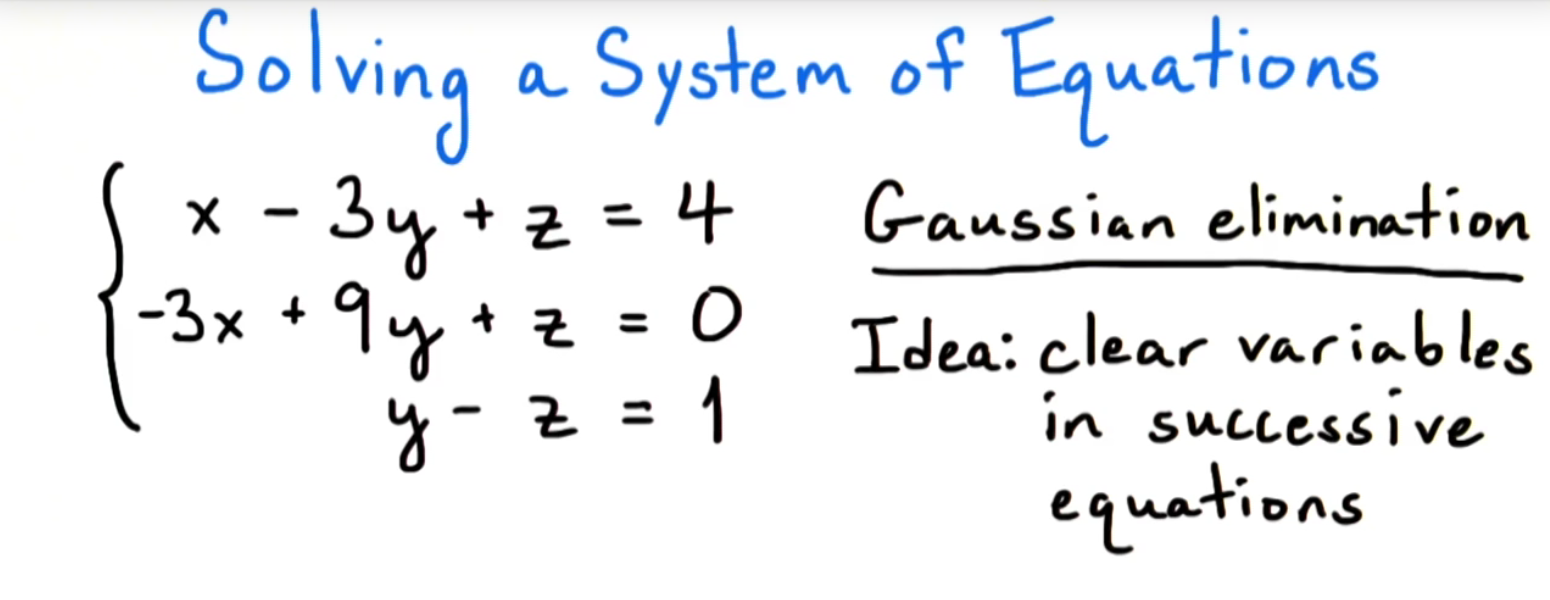 Solving a System of Equations
x - 3y + z = 4
-3x + 9y + z = 0
y - z = 1
Gaussian elimination
Idea: clear variables
in successive
equations